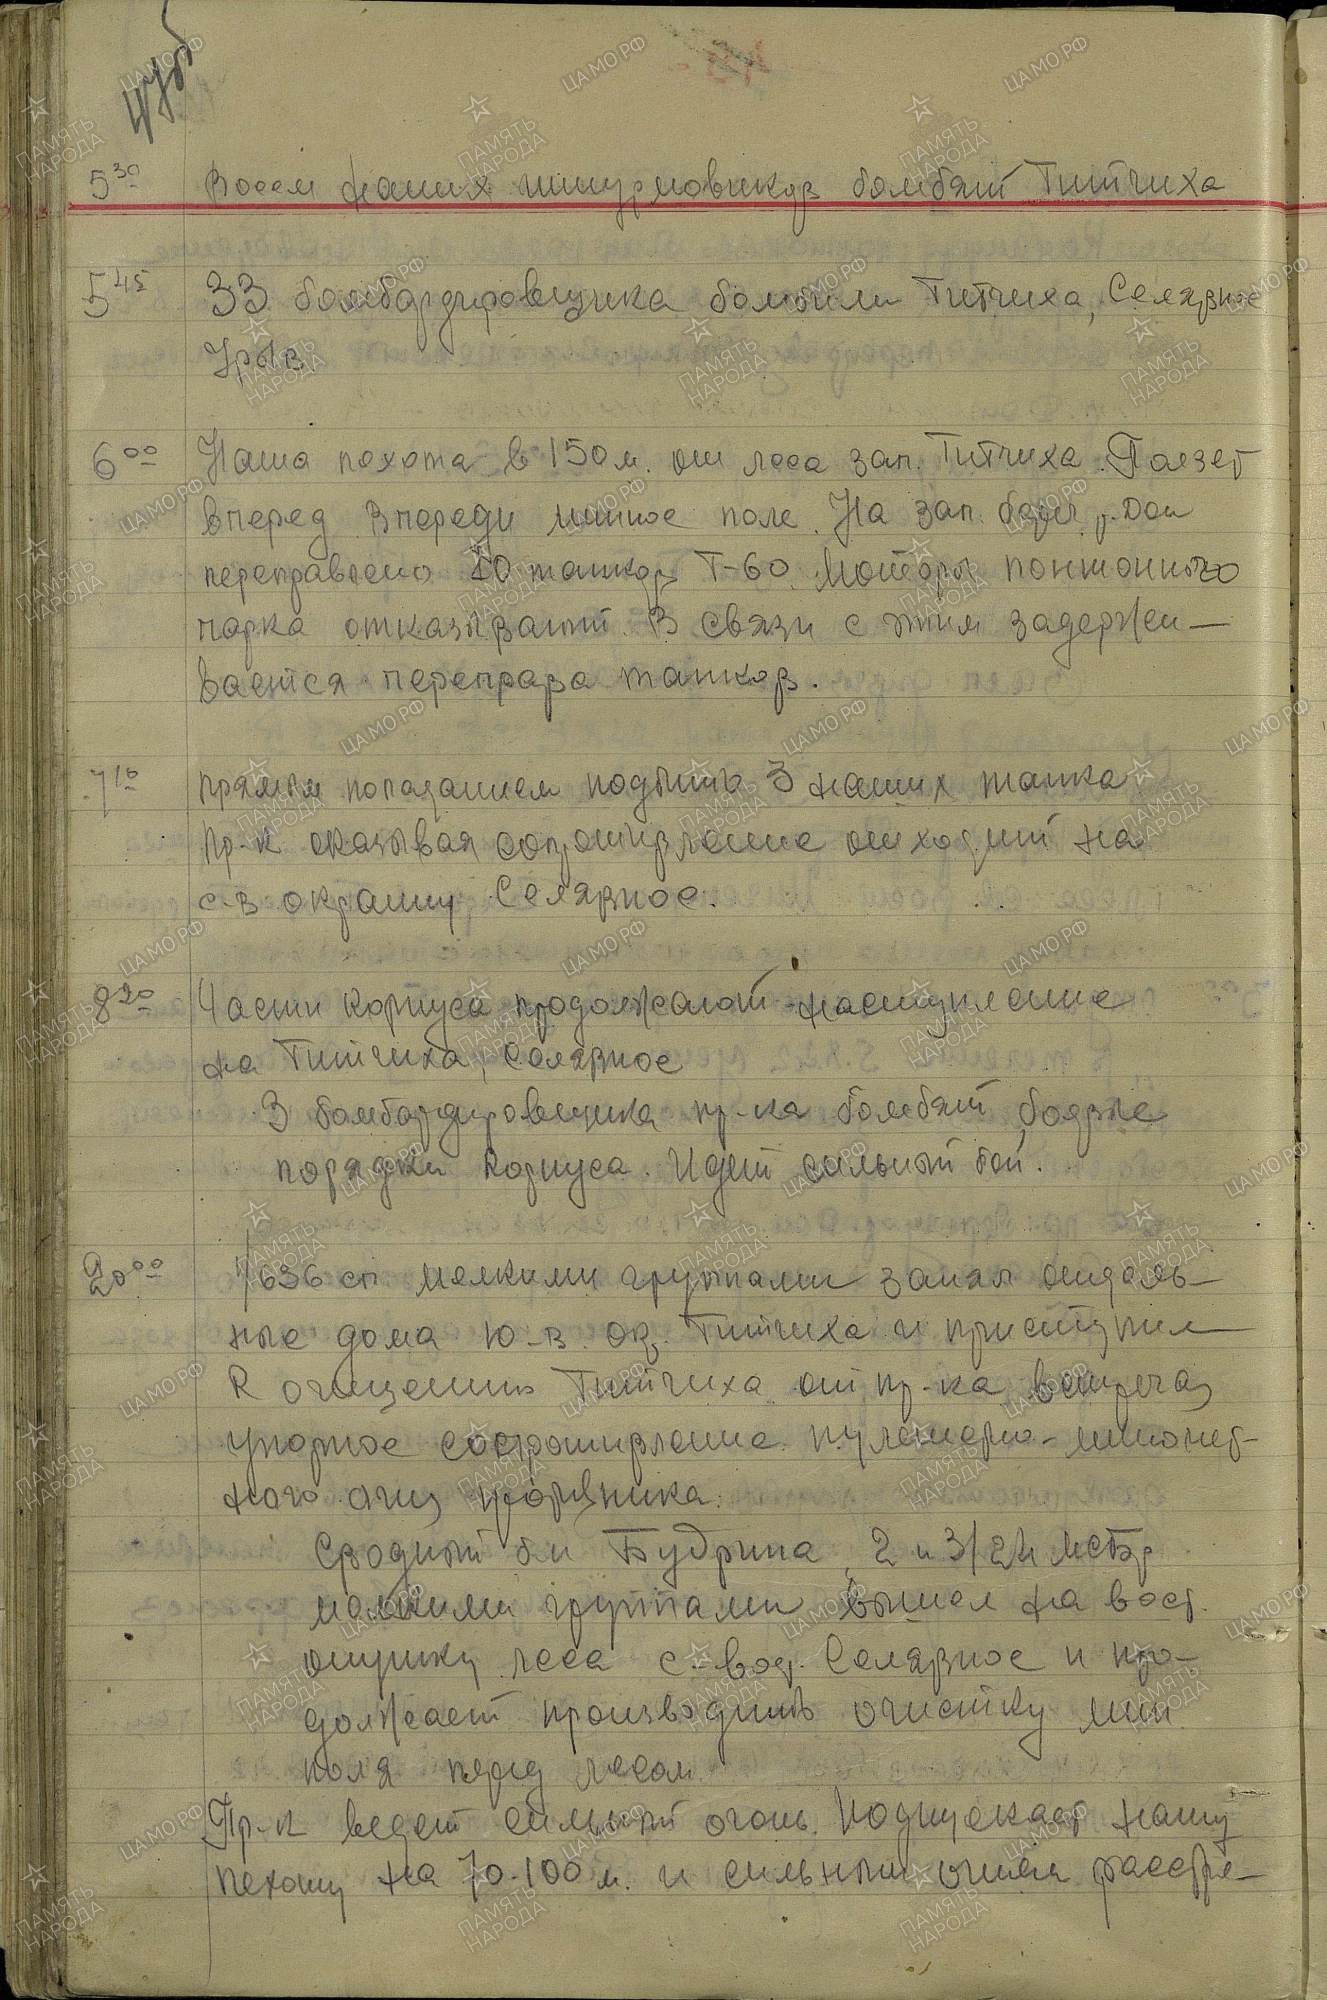 47об
5³⁰ Восем наших штурмовиков бомбят Титчиха
5⁴⁵ 33 бомбардировщика бомбили Титчиха, Селявное
Урыв
6⁰⁰ Наша пехота в 150 м. от леса зап. Титчиха. Ползет
вперед. Впереди минное поле. На зап. берег р. Дон
переправлено 10 танков Т-60. Моторы понтонного
парка отказывают. В связи с этим задержи-
вается переправа танков.
7¹⁰ Прямым попаданием подбито 3 наших танка
Пр-к оказывая сопротивление отходит на
с-в окраину Селявное.
8²⁰ Части корпуса продолжают наступление
на Титчиха, Селявное
3 бомбардировщика пр-ка бомбят боевые
порядки корпуса. Идет сильный бой.
20⁰⁰ 636 сп мелкими группами занял отдель-
ные дома ю-в. ок. Титчиха и приступил
к очищению Титчиха от пр-ка встречая
упорное сопротивление пулеметно-миномет-
ного огня противника.
Сводный б-н Будрина, 2 и 3/24 мсбр
мелкими группами вышел на вост.
опушку леса с-вост. Селявное и про-
должает производить очистку мин.
поля перед лесом.
Пр-к ведет сильный огонь. Подпускает нашу
пехоту на 70-100 м. и сильным огнем расстре-
ПАМЯТЬ НАРОДА
ЦАМО.РФ